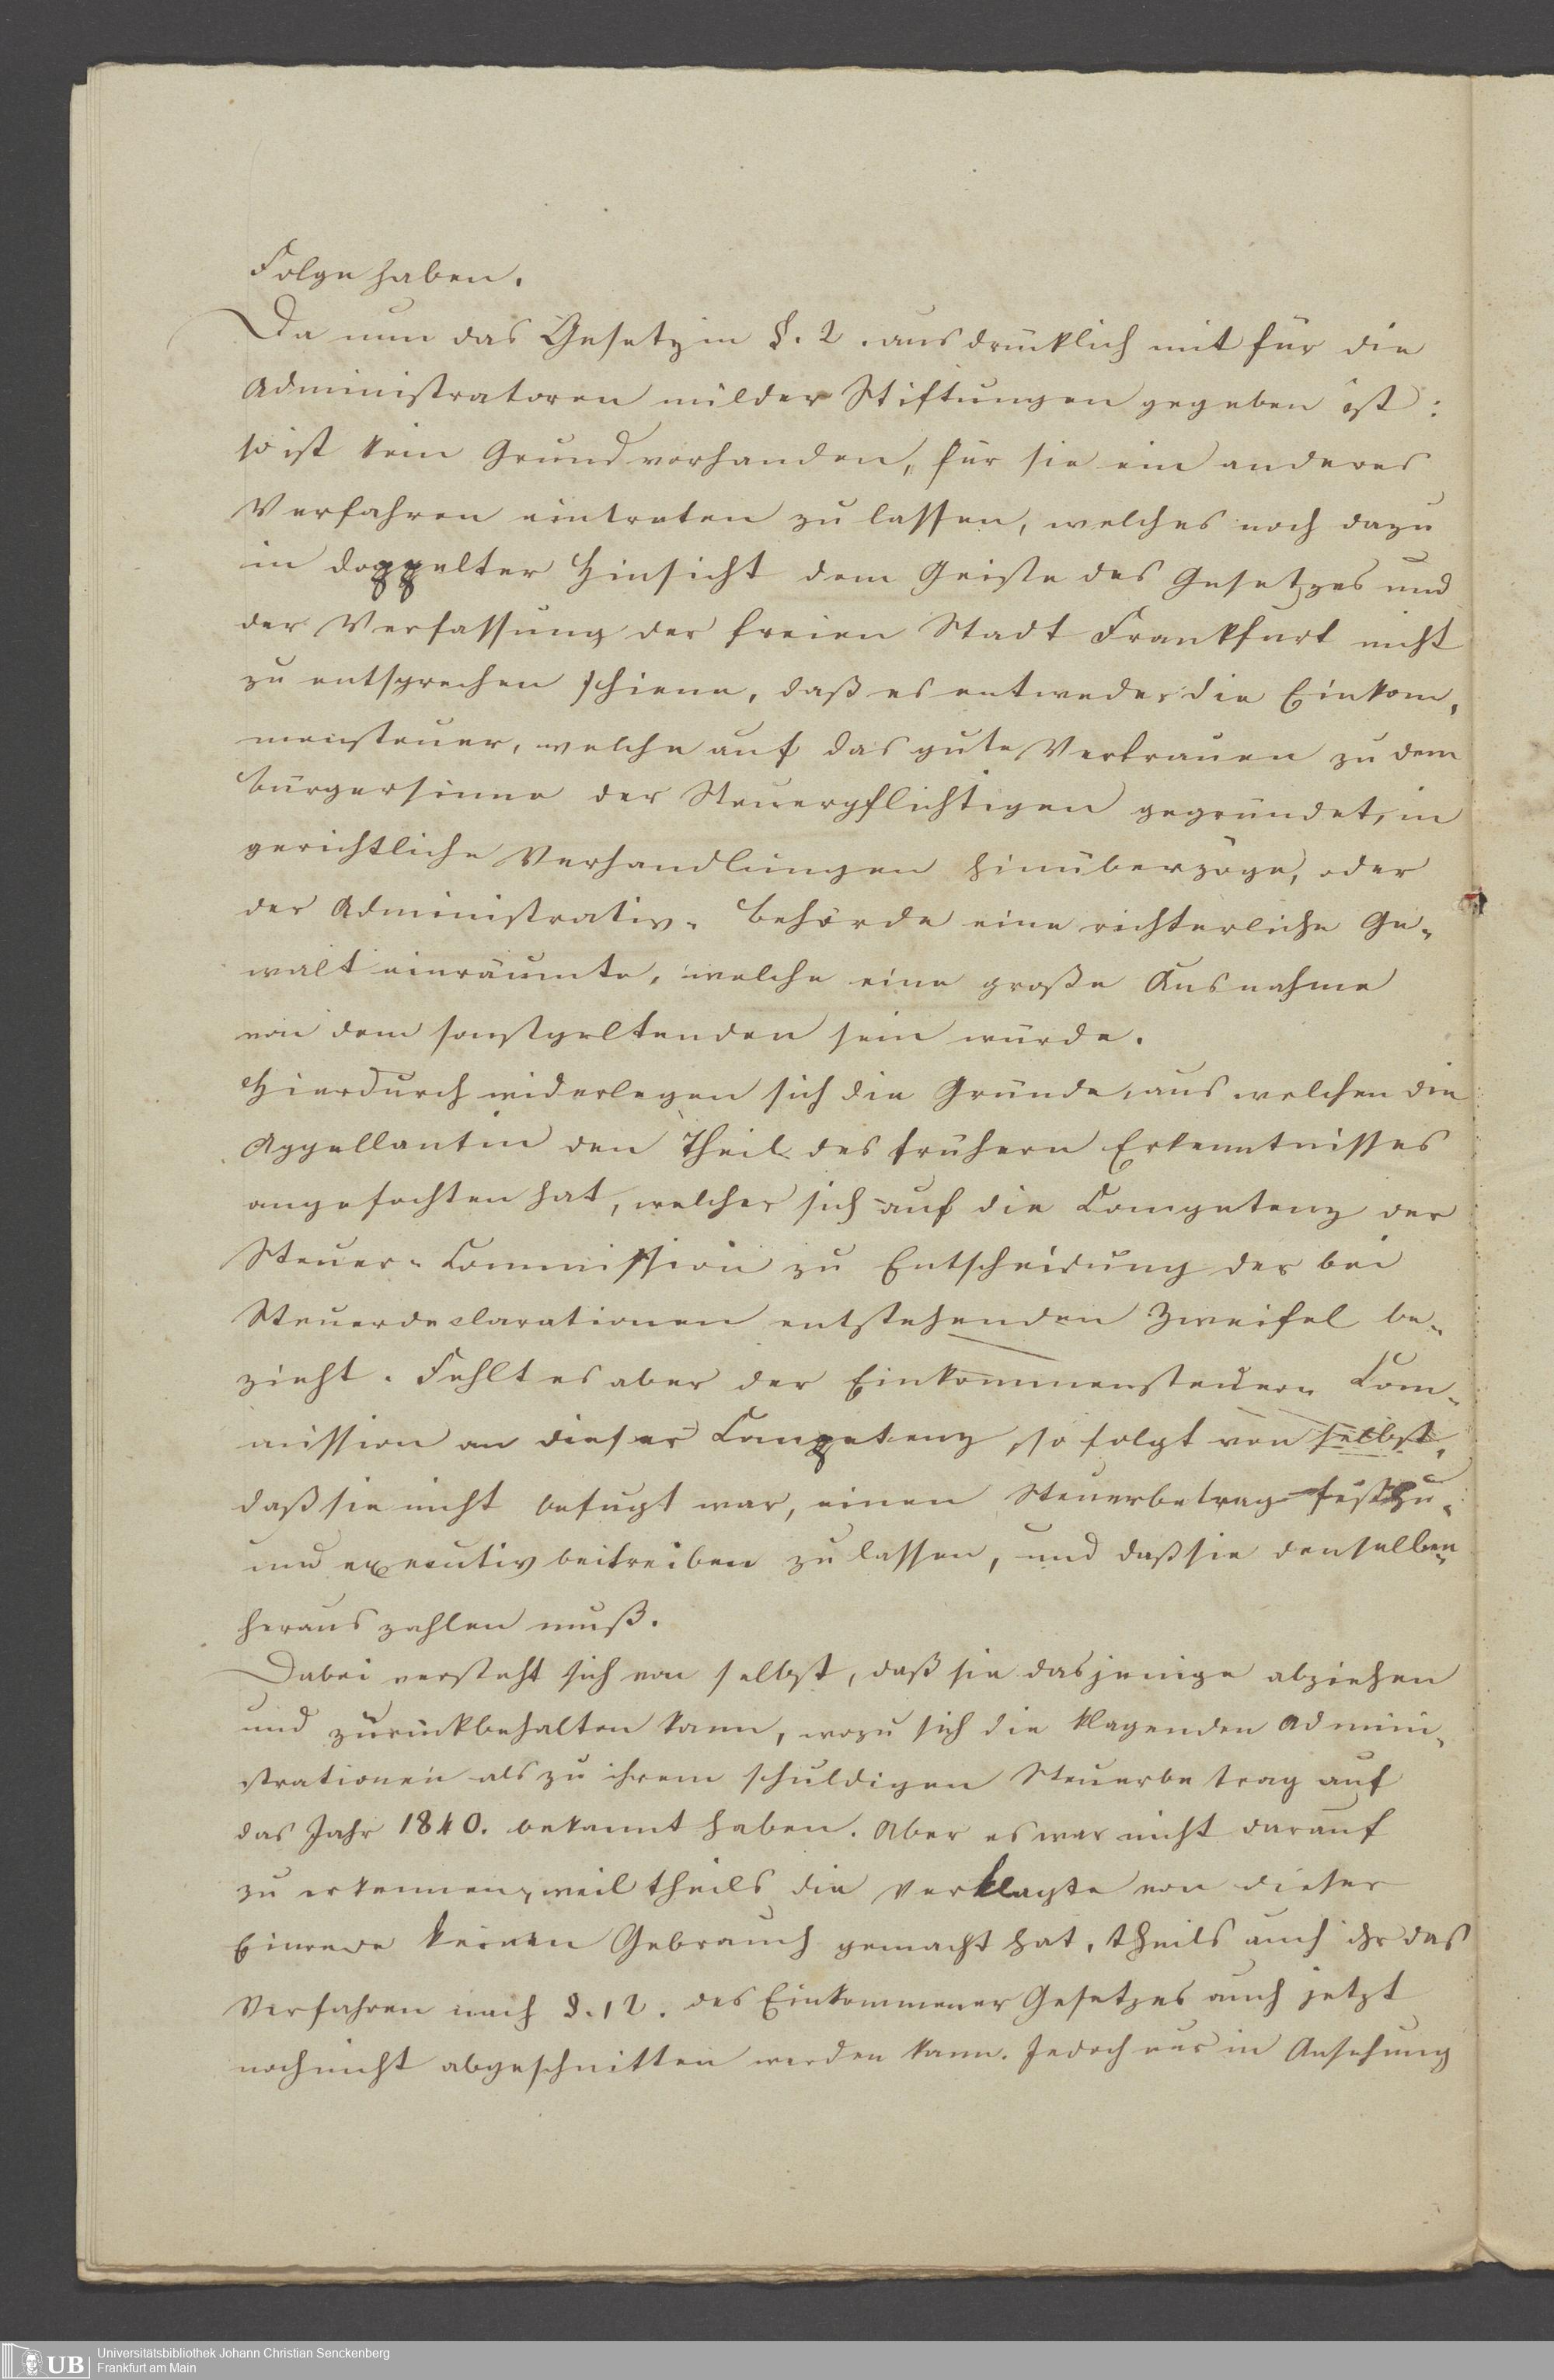 Folge haben.
Da nun das Gesetz in §. 2. ausdrücklich mit für die
Administratoren milder Stiftungen gegeben ist:
so ist kein Grund vorhanden, für sie ein anderes
Verfahren eintreten zu lassen, welches noch dazu
in doppelter Hinsicht dem Geiste des Gesetzes und
der Verfassung der freien Stadt Frankfurt nicht
zu entsprechen schiene, daß es entweder die Einkom-
mensteuer, welche auf das gute Vertrauen zu dem
Bürgersinne der Steuerpflichtigen gegründet, in
gerichtliche Verhandlungen hinüberzöge, oder
der Administrativ-Behörde eine richterliche Ge-
walt einräumte, welche eine große Ausnahme
von dem sonstgeltenden sein würde.
Hierdurch widerlegen sich die Gründe, aus welchen die
Appellantin den Theil des frühern Erkenntnisses
angefochten hat, welcher sich auf die Competenz der
Steuer-Commission zu Entscheidung der bei
Steuerdeclarationen entstehenden Zweifel be-
zieht. Fehlt es aber der Einkommensteuer-Com-
mission an dieser Competenz, so folgt von selbst,
daß sie nicht befugt war, einen Steuerbetrag festzu-
und executiv beitreiben zu lassen, und daß sie denselben
heraus zahlen muß.
Dabei versteht sich von selbst, daß sie dasjenige abziehen
und zurückbehalten kann, wozu sich die klagenden Admini-
strationen als zu ihrem schuldigen Steuerbetrag auf
das Jahr 1840. bekannt haben. Aber es war nicht darauf
zu erkennen, weil theils die Verklagte von dieser
Einrede keinen Gebrauch gemacht hat, theils auch ihr das
Verfahren nach §. 12. des Einkommener Gesetzes auch jetzt
noch nicht abgeschnitten werden kann. Jedoch nur in Ansehung
UB
Universitätsbibliothek Johann Christian Senckenberg
Frankfurt am Main